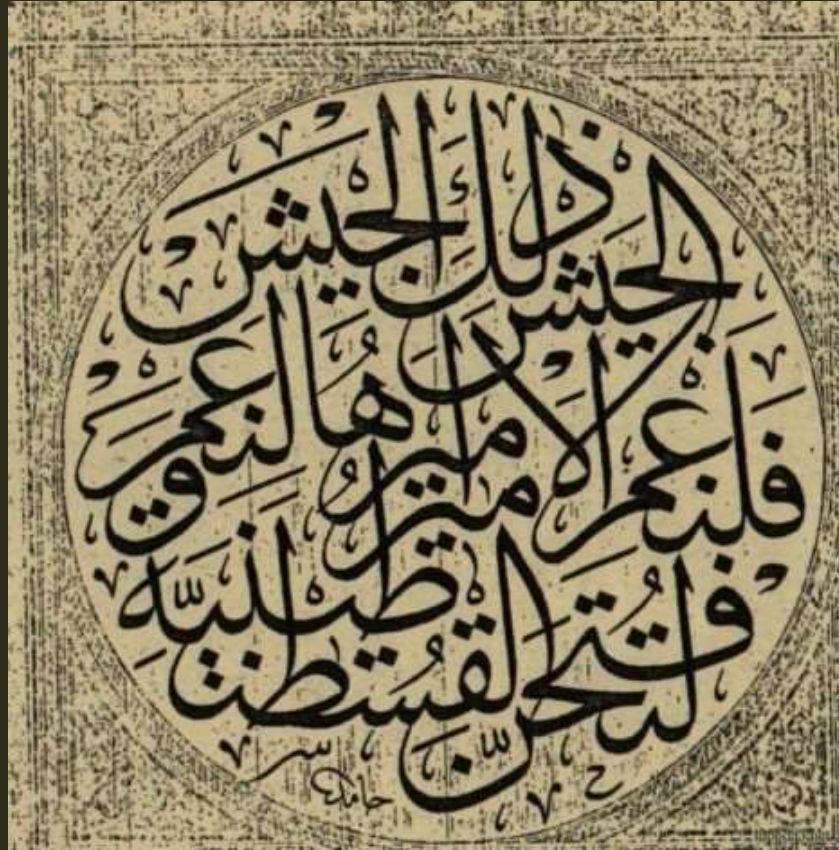 لتفتحن القسطنطينية
فلنعم الامير اميرها ولنعم
الجيش ذلك الجيش
حامد